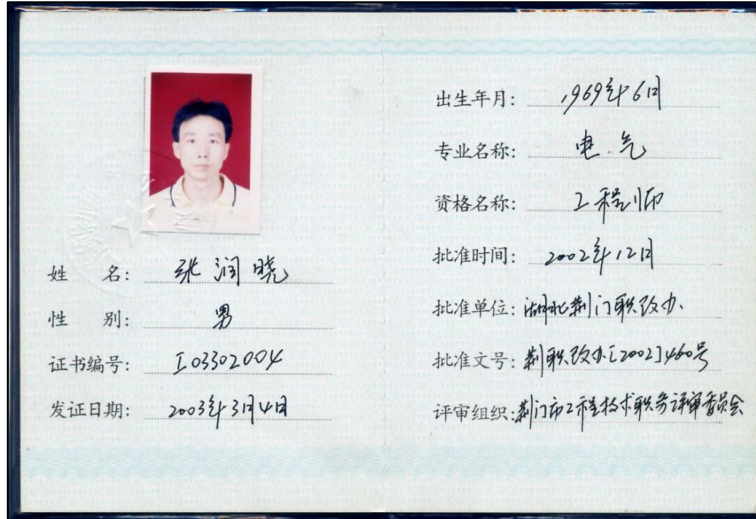 姓 名: 张润晓
性 别: 男
证书编号: I03302004
发证日期: 2003年3月4日
出生年月: 1969年6月
专业名称: 电气
资格名称: 工程师
批准时间: 2002年12月
批准单位: 湖北荆门职改办.
批准文号: 荆职改办[2002]460号
评审组织: 荆门市工程技术职务评审委员会